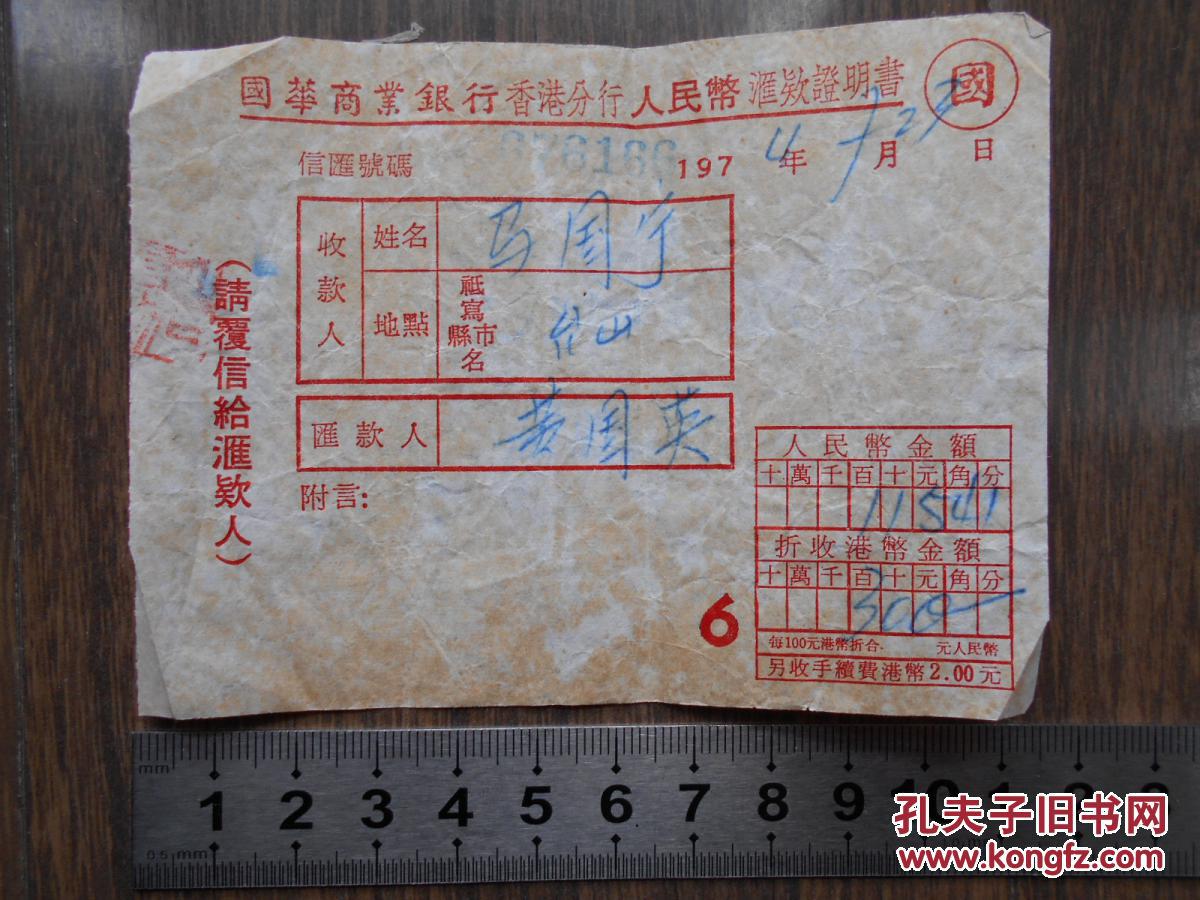 國華商業銀行香港分行人民幣滙欵證明書 國
信匯號碼 076186 1974年 月 日
收款人 姓名 马国宁
地點 祗寫縣市名 台山
匯款人 黄国英
附言：
（請覆信給滙欵人）
人民幣金額
十萬千百十元角分
11541
折收港幣金額
十萬千百十元角分
300—
每100元港幣折合 元人民幣
另收手續費港幣2.00元
6
mm 1 2 3 4 5 6 7 8 9 10
0.5 mm
孔夫子旧书网
www.kongfz.com